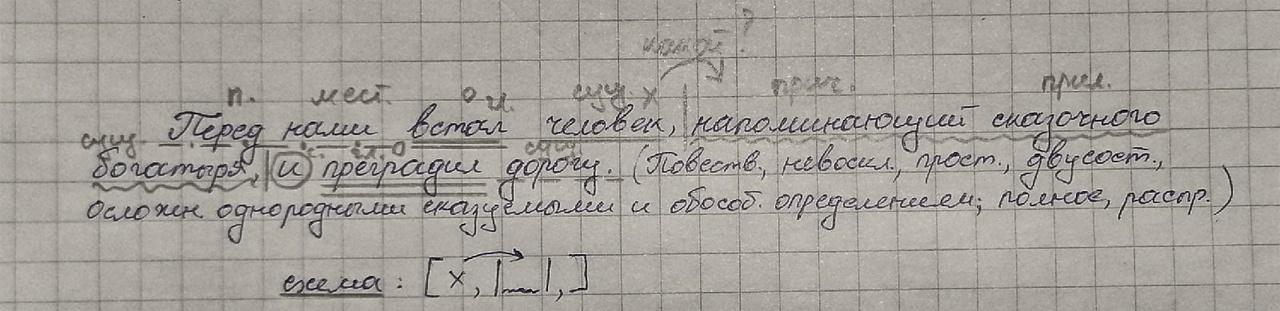 какой?
п. мест. гл. сущ. х прич. прил.
Перед нами встал человек, напоминающий сказочного
сущ. сущ.
богатыря, и преградил дорогу. (Повеств., невоскл., прост., двусост.,
осложн. однородными сказуемыми и обособ. определением; полное, распр.)
схема: [х, |~~|, ]